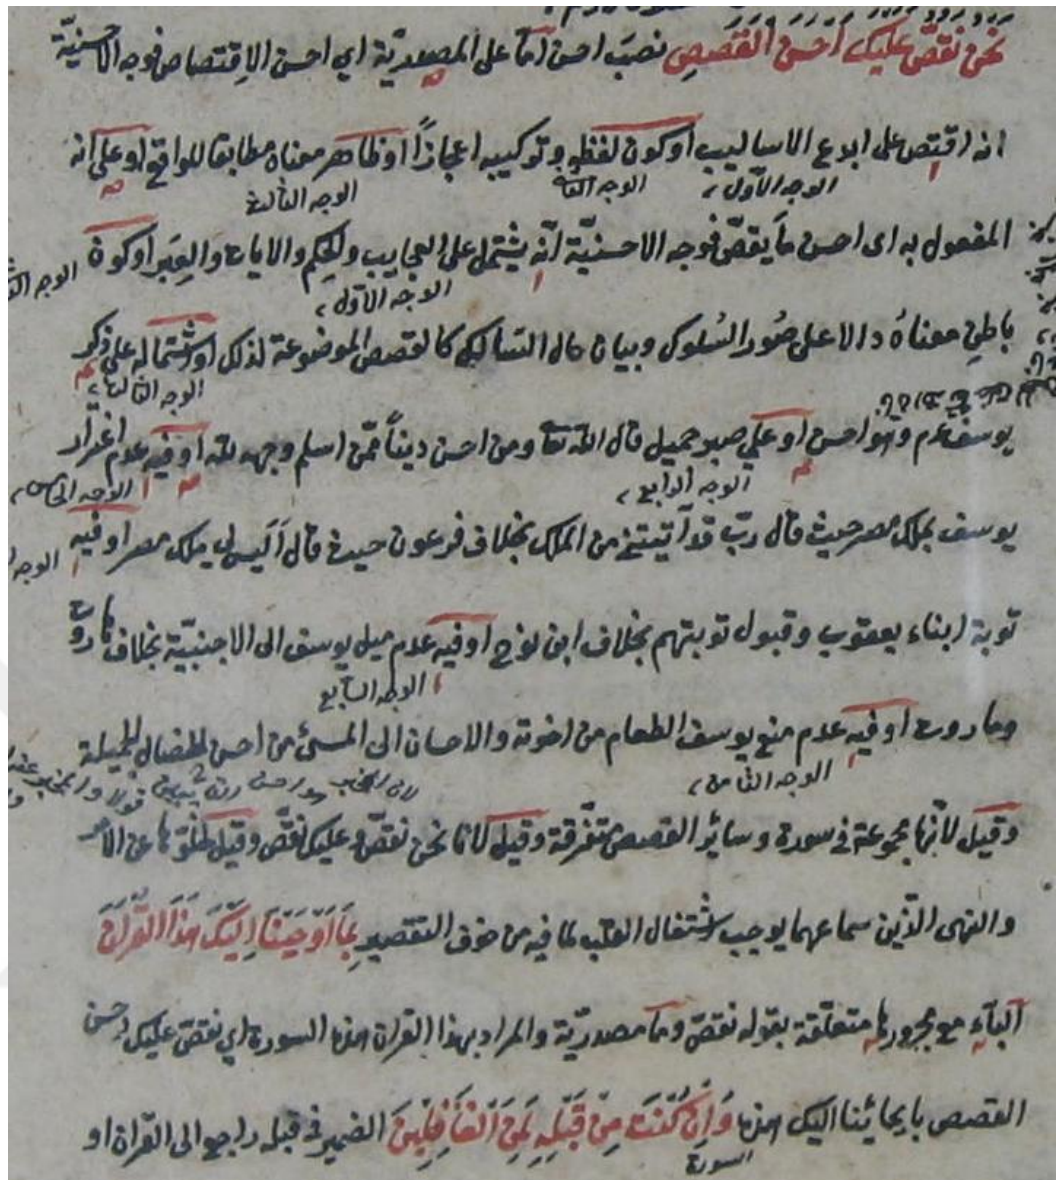 نحن نقصّ عليك أحسن القصص نصب احسن امّا على المصدريّة اي احسن الاقتصاص فوجه الاحسنيّة
انه اقتص على ابدع الاساليب او كون لفظه وتركيبه اعجازاً او ظاهر معناه مطابقا للواقع او على انه
الوجه الأوّل الوجه الثا الوجه الثالث
المفعول به اى احسن ما يقصّ فوجه الاحسنيّة انّه يشتمل على العجايب والحكم والايات والعبر او كون
الوجه الأوّل
باطن معناه دالا على صُور السُلوك وبيان حال السّالك كالقصص الموضوعة لذلك او اشتماله على ذكر
الوجه الثالث
يوسف عم وهو احسن او على صبر جميل قال الله تعا ومن احسن ديناً ممّن اسلم وجهه لله او فيه عدم اغترار
الوجه الرابع الوجه الخامس
يوسف بملك مصر حيث قال ربّ قد آتيتني من الملك بخلاف فرعون حيث قال أليس لي ملك مصر او فيه
الوجه
توبة ابناء يعقوب وقبول توبتهم بخلاف ابن نوح او فيه عدم ميل يوسف الى الاجنبيّة بخلاف هاروت
الوجه السّابع
وماروت او فيه عدم منع يوسف الطعام من اخوته والاحسان الى المسئ من احسن الخصال الجميلة
الوجه الثامن
وقيل لأنّها مجموعة في سورة وسائر القصص متفرقة وقيل لانا نحن نقصّ وعليك نقصّ وقيل لخلوّها عن الامر
والنهى الّذين سماعهما يوجب اشتغال القلب لما فيه من خوف التقصير بِمَا أَوْحَيْنَا إِلَيْكَ هَذَا الْقُرْآنَ
البآء مع مجرورها متعلّقة بقوله نقصّ وما مصدريّة والمراد بهذا القران هذه السورة اي نقصّ عليك احسن
القصص بايحائنا اليك هذه وَإِنْ كُنْتَ مِنْ قَبْلِهِ لَمِنَ الْغَافِلِينَ الضمير في قبله راجع الى القران او
السورة